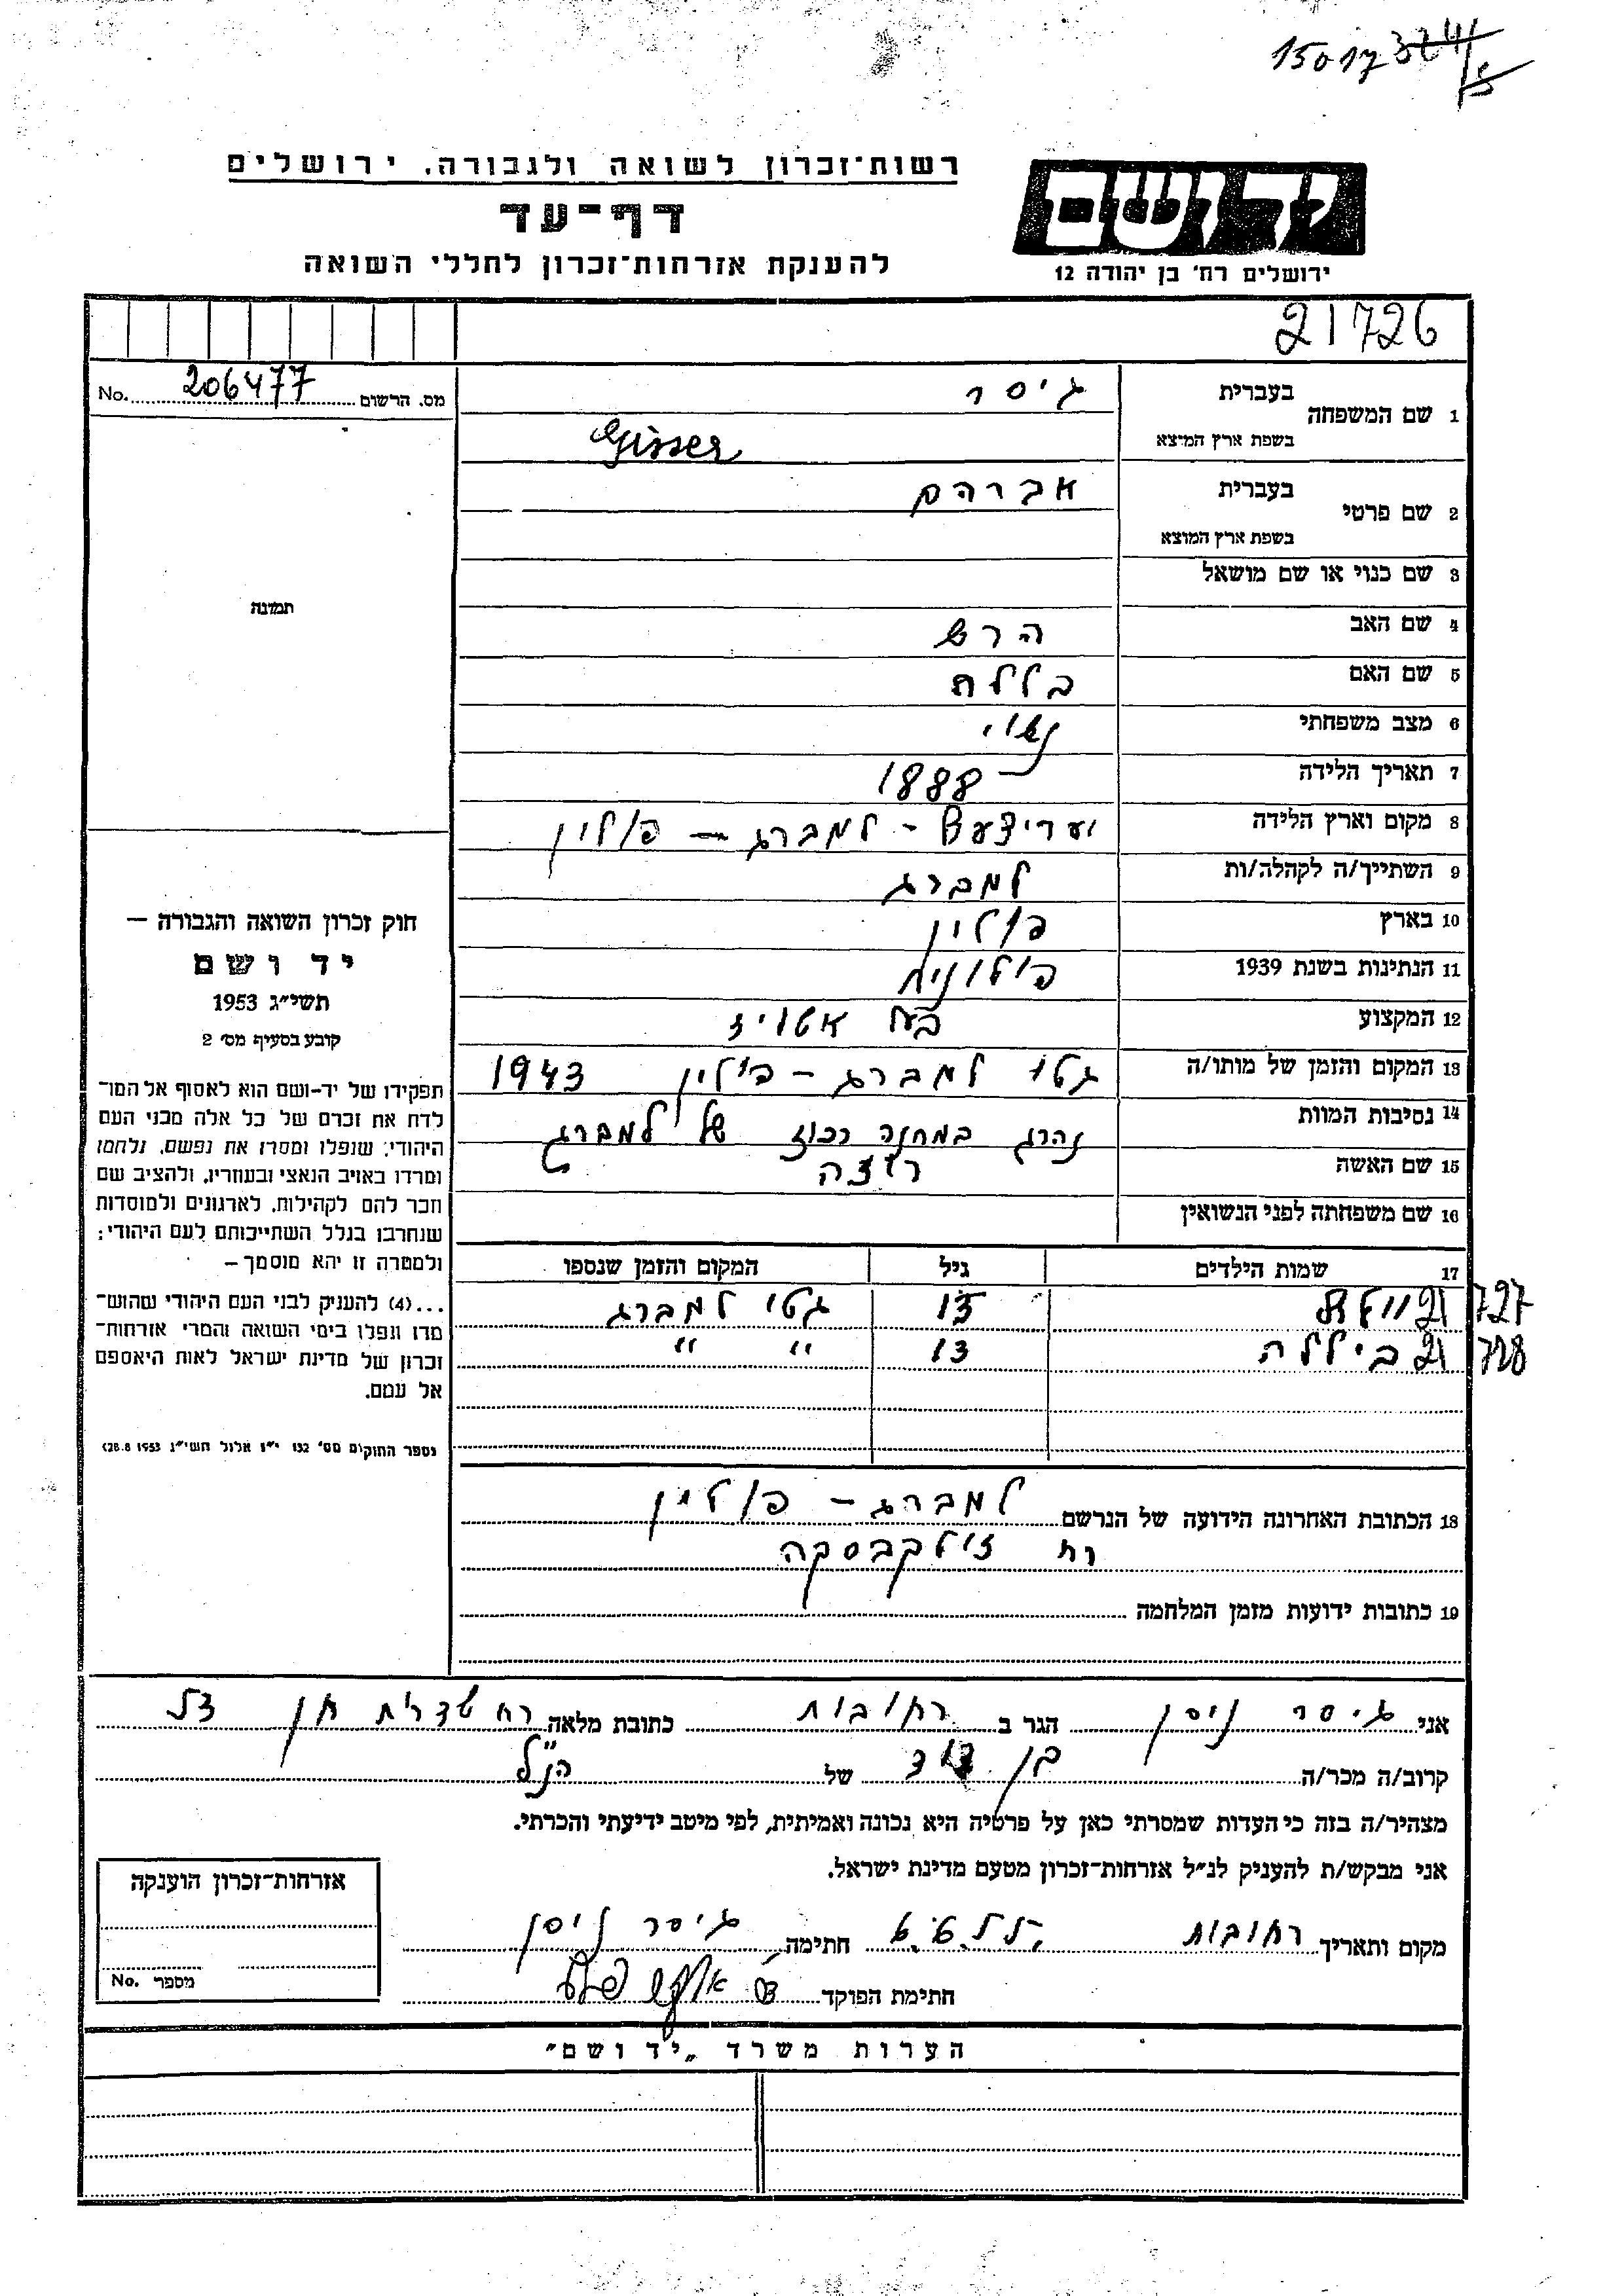 15017 324/5
רשות־זכרון לשואה ולגבורה, ירושלים
יד ושם
דף־עד
להענקת אזרחות־זכרון לחללי השואה
ירושלים רח׳ בן יהודה 12
21726
מס. הרשום 206477 No.
1 שם המשפחה בעברית גיסר
בשפת ארץ המוצא Gisser
2 שם פרטי בעברית אברהם
בשפת ארץ המוצא
3 שם כנוי או שם מושאל
תמונה
4 שם האב הרש
5 שם האם
6 מצב משפחתי נשוי
7 תאריך הלידה 1888
8 מקום וארץ הלידה למברג – פולין
9 השתייך/ה לקהלה/ות למברג
10 בארץ פולין
11 הנתינות בשנת 1939 פולונית
12 המקצוע
13 המקום והזמן של מותו/ה גטו למברג – פולין 1943
14 נסיבות המוות נהרג במחנה רכוז של למברג
15 שם האשה רוזה
16 שם משפחתה לפני הנשואין
חוק זכרון השואה והגבורה –
יד ושם
תשי״ג 1953
קובע בסעיף מס׳ 2
תפקידו של יד-ושם הוא לאסוף אל המו־
לדת את זכרם של כל אלה מבני העם
היהודי, שנפלו ומסרו את נפשם, נלחמו
ומרדו באויב הנאצי ובעוזריו, ולהציב שם
וזכר להם לקהילות, לארגונים ולמוסדות
שנחרבו בגלל השתייכותם לעם היהודי;
ולמטרה זו יהא מוסמך –
...(4) להעניק לבני העם היהודי שהוש־
מדו ונפלו בימי השואה והמרי אזרחות־
זכרון של מדינת ישראל לאות היאספם
אל עמם.
(ספר החוקים מס׳ 132 י״ז אלול תשי״ג 28.8.1953)
17 שמות הילדים גיל המקום והזמן שנספו
21727 15 גטו למברג
21728 בילה 13 " "
18 הכתובת האחרונה הידועה של הנרשם למברג – פולין
רח
19 כתובות ידועות מזמן המלחמה
אני גיסר ניסן הגר ב רחובות כתובת מלאה רח שדרות חן
קרוב/ה מכר/ה בן דוד של הנ"ל
מצהיר/ה בזה כי העדות שמסרתי כאן על פרטיה היא נכונה ואמיתית, לפי מיטב ידיעתי והכרתי.
אני מבקש/ת להעניק לנ״ל אזרחות-זכרון מטעם מדינת ישראל.
מקום ותאריך רחובות חתימה גיסר ניסן
חתימת הפוקד
אזרחות־זכרון הוענקה
מספר No.
הערות משרד „יד ושם״